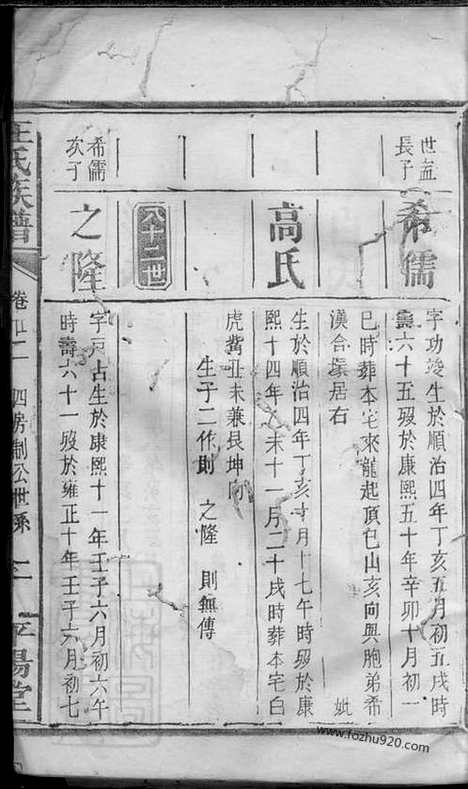 世孟
長子
希儒
字功竣生於順治四年丁亥五月初五戌時
壽六十五歿於康熙五十年辛卯十月初一
巳時葬本宅來龍起頂巳山亥向與胞弟希
漢合塚居右 妣
高氏
生於順治四年丁亥十月十七午時歿於康
熙十四年乙未十一月二十戌時葬本宅白
虎嘴丑未兼艮坤向
生子二作則 之隆 則無傳
八十二世
希儒
次子
之隆
字占生於康熙十一年壬子六月初六午
時壽六十一歿於雍正十年壬子六月初七
王氏族譜
卷 四房制公世系
平陽堂
www.fozhu920.com